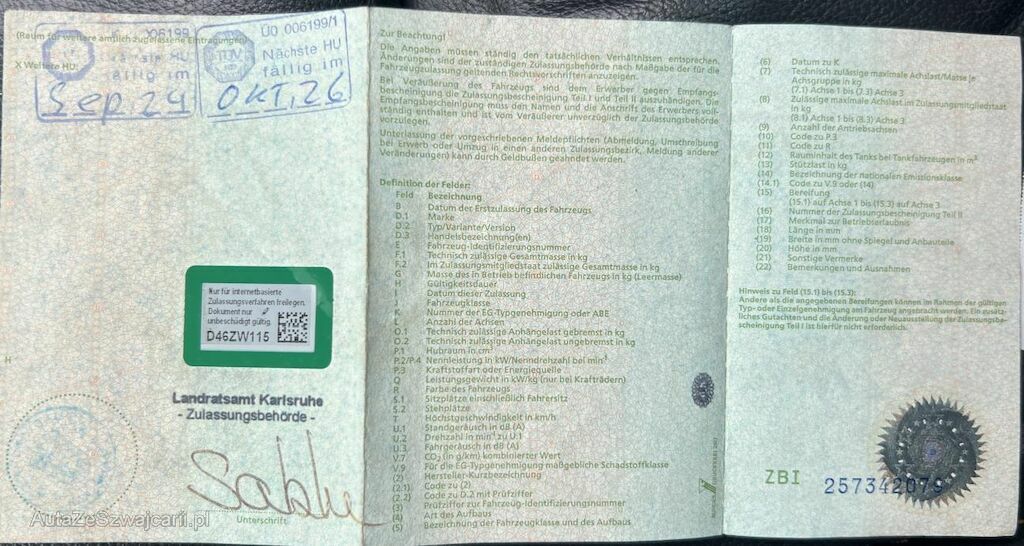 (Raum für weitere amtlich zugelassene Eintragungen)
X Weitere HU:
006199
HU
fällig im
Sep. 24
ÜO 006199/1
TÜV
Nächste HU
fällig im
OKT. 26
Nur für internetbasierte
Zulassungsverfahren freilegen.
Dokument nur
unbeschädigt gültig.
D46ZW115
H
Landratsamt Karlsruhe
- Zulassungsbehörde -
Unterschrift
AutaZeSzwajcarii.pl
Zur Beachtung!
Die Angaben müssen ständig den tatsächlichen Verhältnissen entsprechen.
Änderungen sind der zuständigen Zulassungsbehörde nach Maßgabe der für die
Fahrzeugzulassung geltenden Rechtsvorschriften anzuzeigen.
Bei Veräußerung des Fahrzeugs sind dem Erwerber gegen Empfangs-
bescheinigung die Zulassungsbescheinigung Teil I und Teil II auszuhändigen. Die
Empfangsbescheinigung muss den Namen und die Anschrift des Erwerbers voll-
ständig enthalten und ist vom Veräußerer unverzüglich der Zulassungsbehörde
vorzulegen.
Unterlassung der vorgeschriebenen Meldepflichten (Abmeldung, Umschreibung
bei Erwerb oder Umzug in einen anderen Zulassungsbezirk, Meldung anderer
Veränderungen) kann durch Geldbußen geahndet werden.
Definition der Felder:
Feld Bezeichnung
B Datum der Erstzulassung des Fahrzeugs
D.1 Marke
D.2 Typ/Variante/Version
D.3 Handelsbezeichnung(en)
E Fahrzeug-Identifizierungsnummer
F.1 Technisch zulässige Gesamtmasse in kg
F.2 Im Zulassungsmitgliedstaat zulässige Gesamtmasse in kg
G Masse des in Betrieb befindlichen Fahrzeugs in kg (Leermasse)
H Gültigkeitsdauer
I Datum dieser Zulassung
J Fahrzeugklasse
K Nummer der EG-Typgenehmigung oder ABE
L Anzahl der Achsen
O.1 Technisch zulässige Anhängelast gebremst in kg
O.2 Technisch zulässige Anhängelast ungebremst in kg
P.1 Hubraum in cm³
P.2/P.4 Nennleistung in kW/Nenndrehzahl bei min⁻¹
P.3 Kraftstoffart oder Energiequelle
Q Leistungsgewicht in kW/kg (nur bei Krafträdern)
R Farbe des Fahrzeugs
S.1 Sitzplätze einschließlich Fahrersitz
S.2 Stehplätze
T Höchstgeschwindigkeit in km/h
U.1 Standgeräusch in dB (A)
U.2 Drehzahl in min⁻¹ zu U.1
U.3 Fahrgeräusch in dB (A)
V.7 CO₂ (in g/km) kombinierter Wert
V.9 Für die EG-Typgenehmigung maßgebliche Schadstoffklasse
(2) Hersteller-Kurzbezeichnung
(2.1) Code zu (2)
(2.2) Code zu D.2 mit Prüfziffer
(3) Prüfziffer zur Fahrzeug-Identifizierungsnummer
(4) Art des Aufbaus
(5) Bezeichnung der Fahrzeugklasse und des Aufbaus
(6) Datum zu K
(7) Technisch zulässige maximale Achslast/Masse je
Achsgruppe in kg
(7.1) Achse 1 bis (7.3) Achse 3
(8) Zulässige maximale Achslast im Zulassungsmitgliedstaat
in kg
(8.1) Achse 1 bis (8.3) Achse 3
(9) Anzahl der Antriebsachsen
(10) Code zu P.3
(11) Code zu R
(12) Rauminhalt des Tanks bei Tankfahrzeugen in m³
(13) Stützlast in kg
(14) Bezeichnung der nationalen Emissionsklasse
(14.1) Code zu V.9 oder (14)
(15) Bereifung
(15.1) auf Achse 1 bis (15.3) auf Achse 3
(16) Nummer der Zulassungsbescheinigung Teil II
(17) Merkmal zur Betriebserlaubnis
(18) Länge in mm
(19) Breite in mm ohne Spiegel und Anbauteile
(20) Höhe in mm
(21) Sonstige Vermerke
(22) Bemerkungen und Ausnahmen
Hinweis zu Feld (15.1) bis (15.3):
Andere als die angegebenen Bereifungen können im Rahmen der gültigen
Typ- oder Einzelgenehmigung am Fahrzeug angebracht werden. Ein zusätz-
liches Gutachten und die Änderung oder Neuausstellung der Zulassungsbe-
scheinigung Teil I ist hierfür nicht erforderlich.
ZBI 257342079